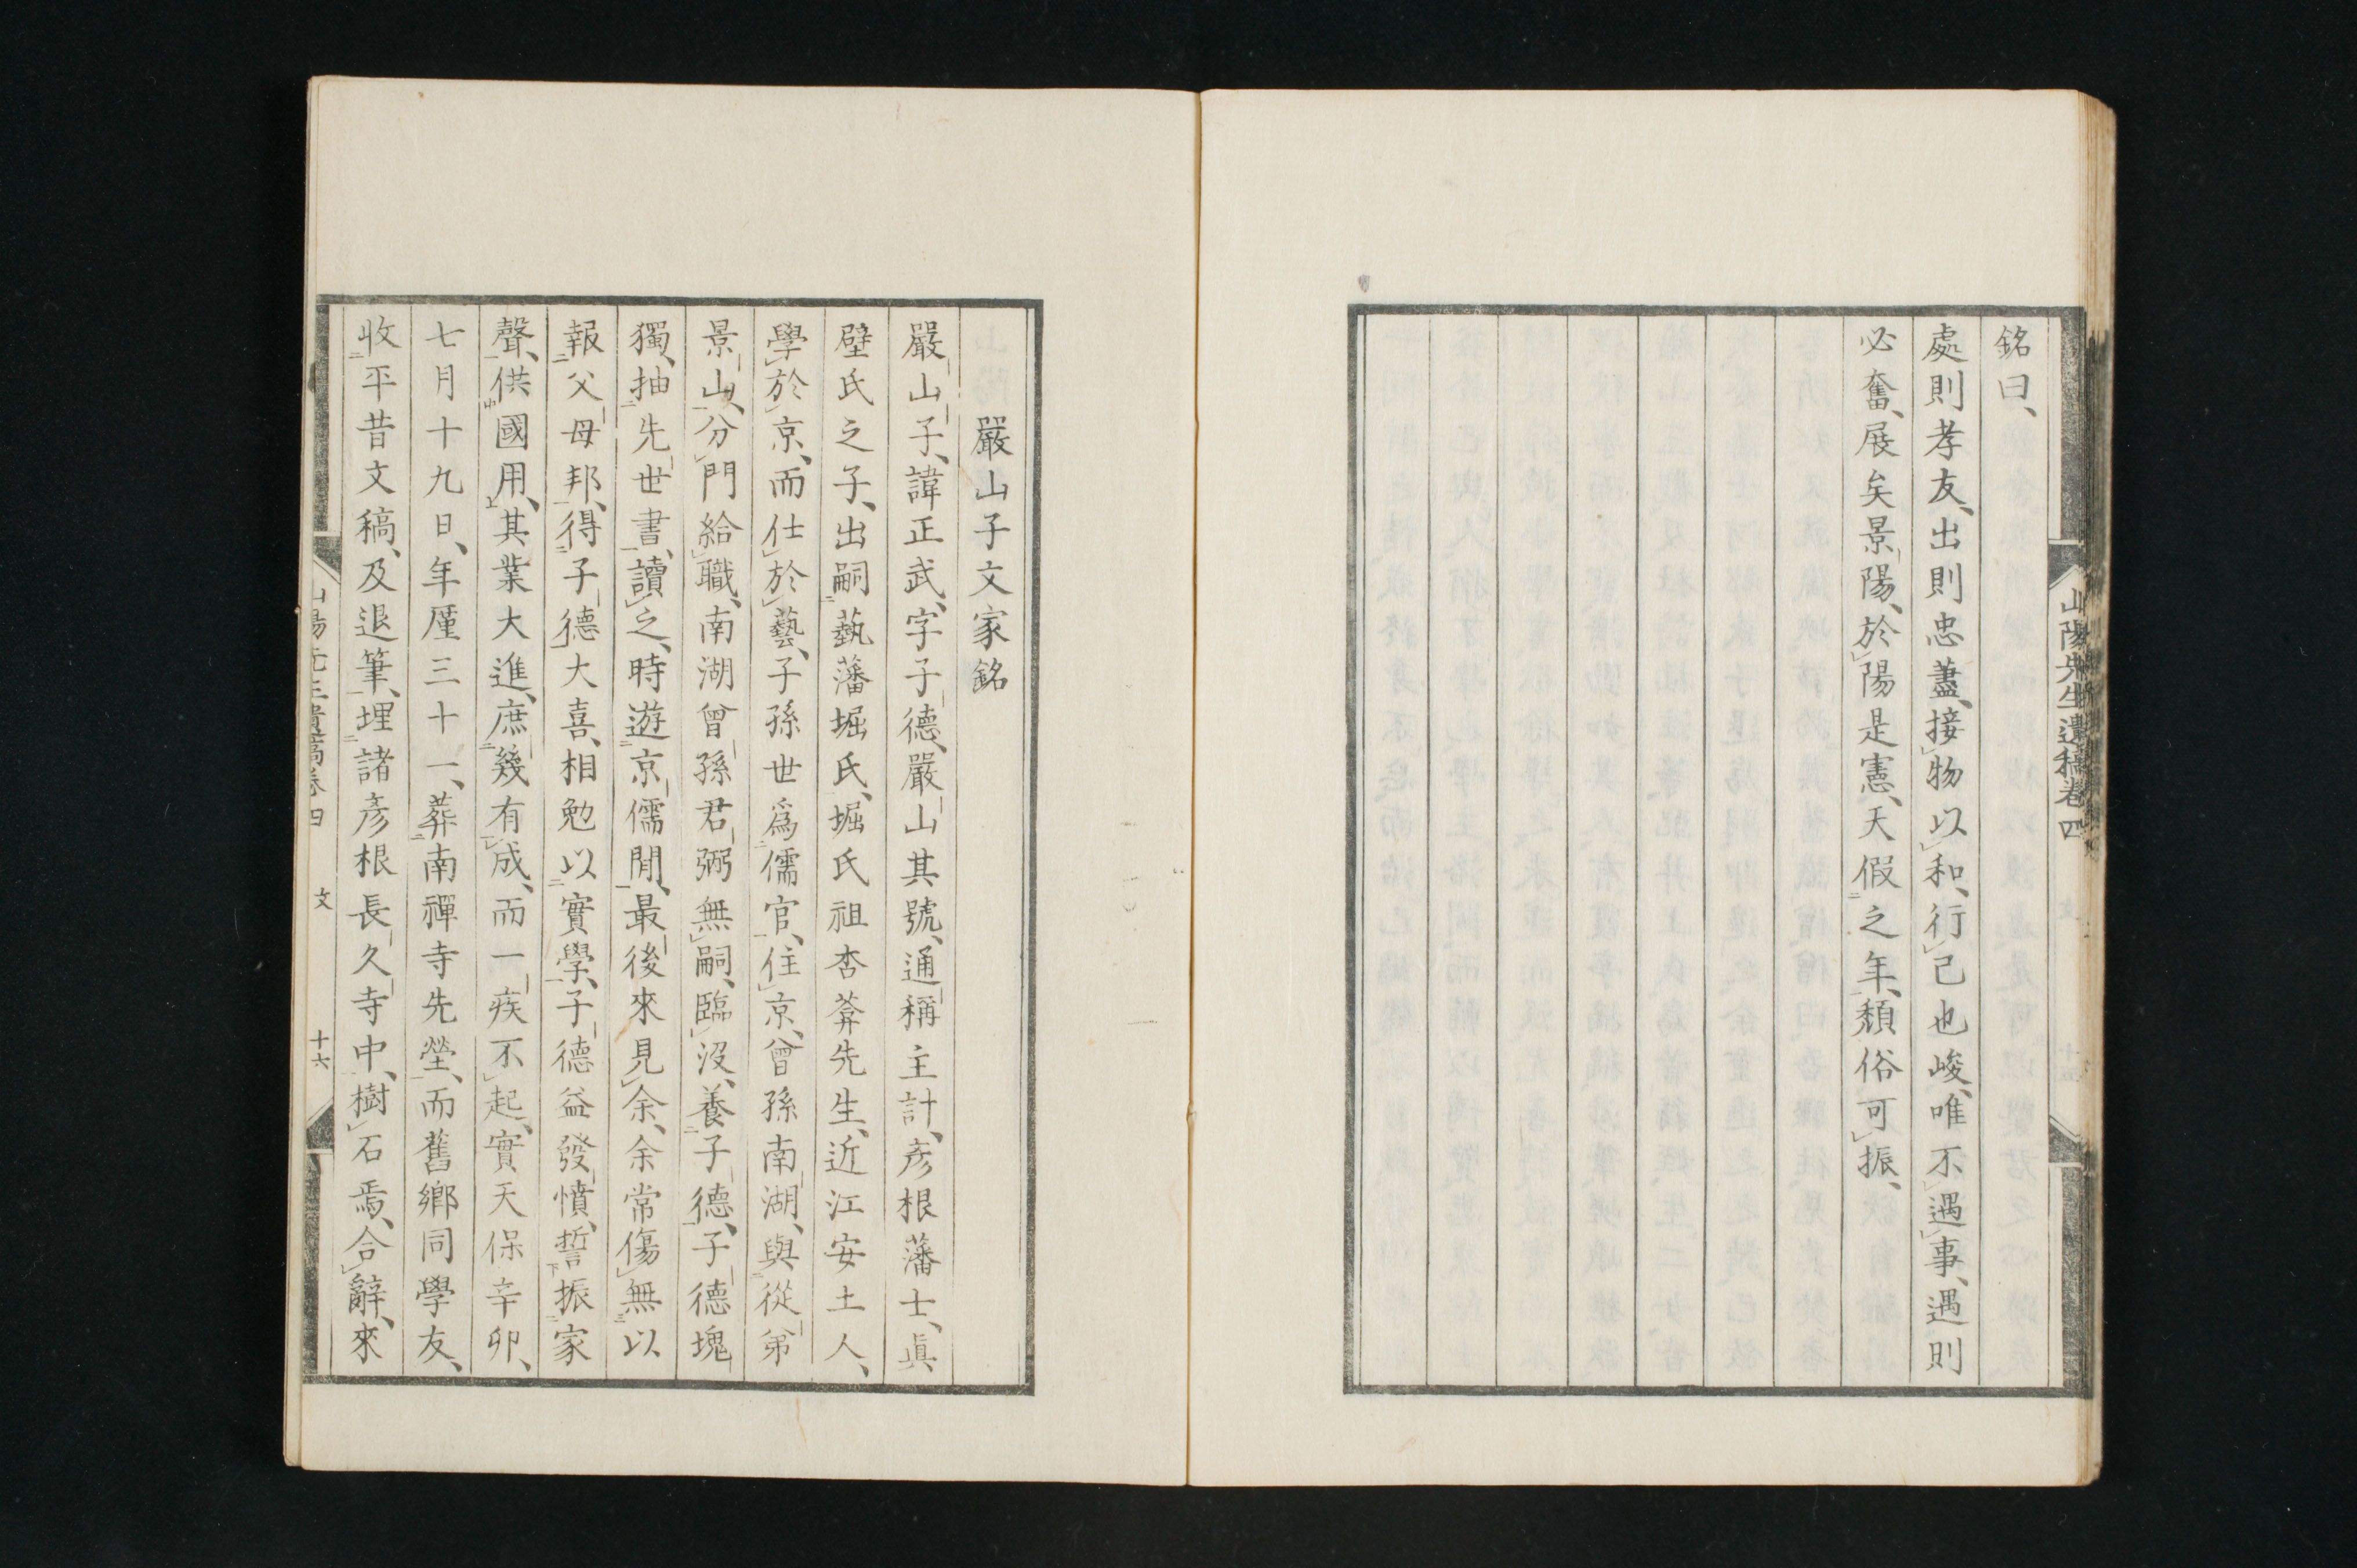 銘曰、
處則孝友、出則忠藎、接物以和、行己也峻、唯不遇事、遇則
必奮、展矣景陽、於陽是憲、天假之年、頽俗可振、
山陽先生遺稿卷四
嚴山子文冢銘
嚴山子、諱正武、字子德、嚴山其號、通稱主計、彥根藩士、眞
壁氏之子、出嗣藝藩堀氏、堀氏祖杏菴先生、近江安土人、
學於京、而仕於藝、子孫世爲儒官、住京、曾孫南湖、與從弟
景山、分門給職、南湖曾孫君弼無嗣、臨沒、養子德、子德塊
獨、抽先世書、讀之、時遊京儒間、最後來見余、余常傷無以
報父母邦、得子德大喜、相勉以實學、子德益發憤、誓振家
聲、供國用、其業大進、庶幾有成、而一疾不起、實天保辛卯、
七月十九日、年厪三十一、葬南禪寺先塋、而舊鄉同學友、
收平昔文稿、及退筆、埋諸彥根長久寺中、樹石焉、合辭、來
山陽先生遺稿卷四
文
十六